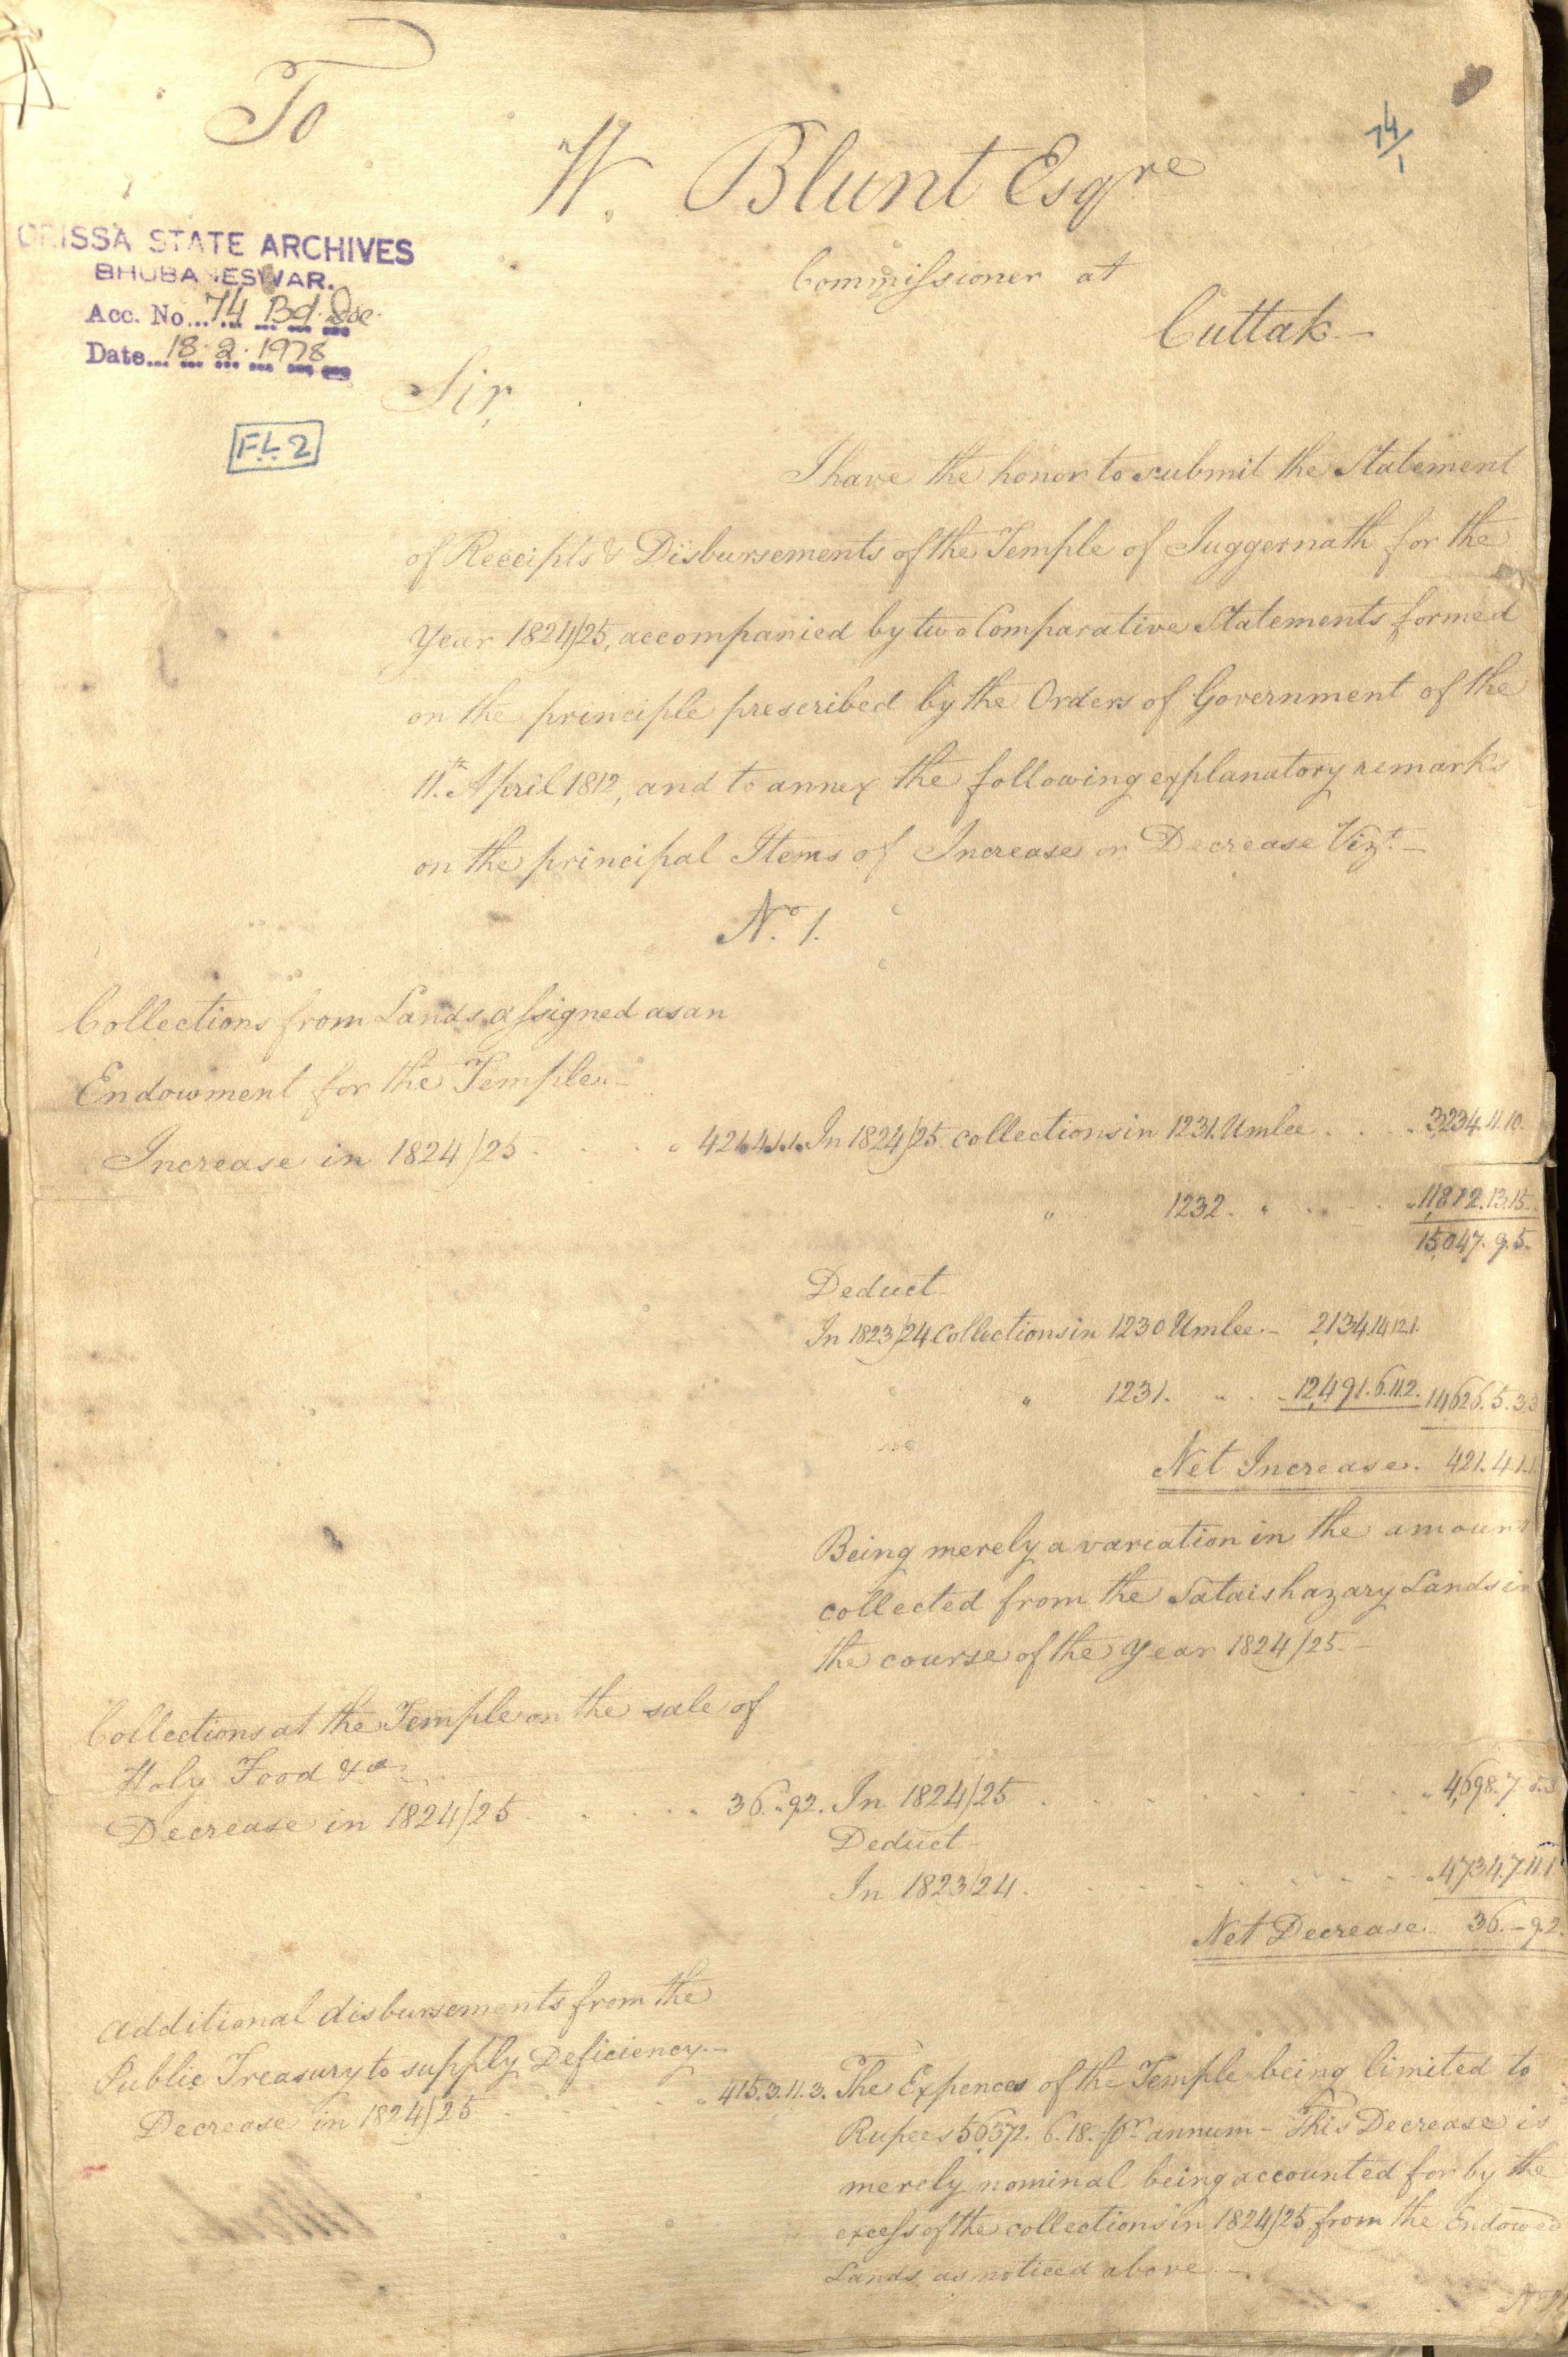 To
W. Blunt Esqre
Commissioner at
Cuttak—
74/1
ORISSA STATE ARCHIVES
BHUBANESWAR.
Acc. No. 74 Bd. Doc.
Date 18.2.1978
F.L.2
Sir,
I have the honor to submit the Statement
of Receipts & Disbursements of the Temple of Juggernath for the
Year 1824/25, accompanied by two Comparative Statements formed
on the principle prescribed by the Orders of Government of the
11th. April 1812, and to annex the following explanatory remarks
on the principal Items of Increase or Decrease Vizt.—
No. 1.
Collections from Lands assigned as an
Endowment for the Temple.—
Increase in 1824/25 . . . . " 421.4.1.1. In 1824/25 collections in 1231. Umlee . . . . 3,234.11.10.
" 1232. " . . . . . 11,812.13.15.
15,047.9.5.
Deduct—
In 1823/24 Collections in 1230 Umlee.— 2,134.14.12.1.
" 1231. " . . . 12,491.6.11.2. 14,626.5.3.3
Net Increase. 421.4.1.1.
Being merely a variation in the amount
collected from the Sataishazary Lands in
the course of the Year 1824/25.—
Collections at the Temple on the sale of
Holy Food &a.—
Decrease in 1824/25 . . . . . 36.„9.2. In 1824/25 . . . . . . . . . . " 4,698.7.5.3
Deduct—
In 1823/24. . . . . . . . . . . 4,734.7.11.1
Net Decrease. 36.—9.2.
Additional disbursements from the
Public Treasury to supply Deficiency.—
Decrease in 1824/25 . . . . . . " 415.3.11.3. The Expences of the Temple being limited to
Rupees 56,372. 6.18. pr annum — This Decrease is
merely nominal being accounted for by the
excess of the collections in 1824/25 from the Endowed
Lands as noticed above.—